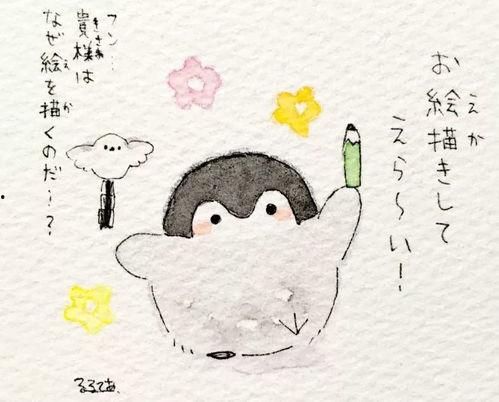 えか
お絵描きして
えら〜い！
フン…
きさま
貴様は
えか
なぜ絵を描くのだ！？
るるてあ